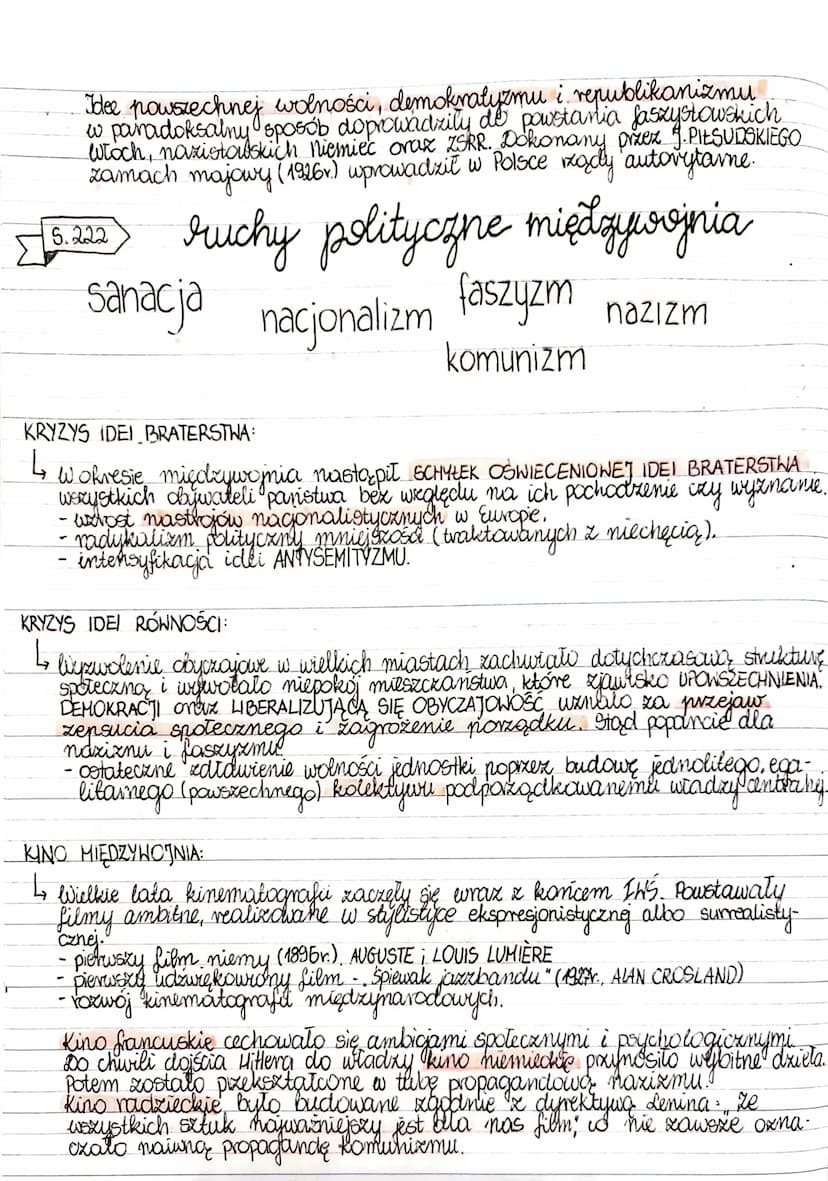 Idee powszechnej wolności, demokratyzmu i republikanizmu
w paradoksalny sposób doprowadziły do powstania faszystowskich
Włoch, nazistowskich Niemiec oraz ZSRR. Dokonany przez J. PIŁSUDSKIEGO
zamach majowy (1926r.) wprowadził w Polsce rządy autorytarne.
S. 222
ruchy polityczne międzywojnia
sanacja
nacjonalizm
faszyzm
nazizm
komunizm
KRYZYS IDEI BRATERSTWA:
↳ W okresie międzywojnia nastąpił SCHYŁEK OŚWIECENIOWEJ IDEI BRATERSTWA
wszystkich obywateli państwa bez względu na ich pochodzenie czy wyznanie.
- wzrost nastrojów nacjonalistycznych w Europie,
- radykalizm polityczny mniejszości (traktowanych z niechęcią).
- intensyfikacja idei ANTYSEMITYZMU.
KRYZYS IDEI RÓWNOŚCI:
↳ Wyzwolenie obyczajowe w wielkich miastach zachwiało dotychczasową strukturę
społeczną i wywołało niepokój mieszczaństwa, które zjawisko UPOWSZECHNIENIA
DEMOKRACJI oraz LIBERALIZUJĄCĄ SIĘ OBYCZAJOWOŚĆ uznało za przejaw
zepsucia społecznego i zagrożenie porządku. Stąd poparcie dla
nazizmu i faszyzmu
- ostateczne zdławienie wolności jednostki poprzez budowę jednolitego, ega-
litarnego (powszechnego) kolektywu podporządkowanemu władzy centralnej.
KINO MIĘDZYWOJNIA:
↳ Wielkie lata kinematografii zaczęły się wraz z końcem IWŚ. Powstawały
filmy ambitne, realizowane w stylistyce ekspresjonistycznej albo surrealisty-
cznej.
- pierwszy film niemy (1895r.), AUGUSTE i LOUIS LUMIÈRE
- pierwszy udźwiękowiony film - „Śpiewak jazzbandu" (1927r., ALAN CROSLAND)
- rozwój kinematografii międzynarodowych.
Kino francuskie cechowało się ambicjami społecznymi i psychologicznymi.
Do chwili dojścia Hitlera do władzy kino niemieckie przynosiło wybitne dzieła.
Potem zostało przekształcone w tubę propagandową nazizmu.
Kino radzieckie było budowane zgodnie z dyrektywą Lenina: „Ze
wszystkich sztuk najważniejszy jest dla nas film", co nie zawsze ozna-
czało naiwną propagandę komunizmu.